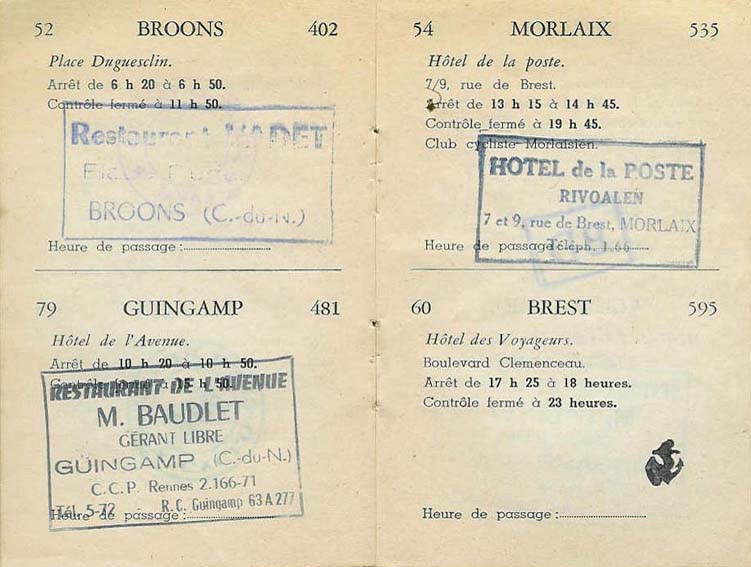 52 BROONS 402
Place Duguesclin.
Arrêt de 6 h 20 à 6 h 50.
Contrôle fermé à 11 h 50.
Restaurant
BROONS (C.-du-N.)
Heure de passage :
79 GUINGAMP 481
Hôtel de l'Avenue.
Arrêt de 10 h 20 à 10 h 50.
Contrôle fermé à 15 h 50.
RESTAURANT DE L'AVENUE
M. BAUDLET
GÉRANT LIBRE
GUINGAMP (C.-du-N.)
C.C.P. Rennes 2.166-71
Tél. 5-72 R.C. Guingamp 63 A 277
Heure de passage :
54 MORLAIX 535
Hôtel de la poste.
7/9, rue de Brest.
Arrêt de 13 h 15 à 14 h 45.
Contrôle fermé à 19 h 45.
Club cycliste Morlaisien.
HOTEL de la POSTE
RIVOALEN
7 et 9, rue de Brest, MORLAIX
Téléph. 1.66
Heure de passage
60 BREST 595
Hôtel des Voyageurs.
Boulevard Clemenceau.
Arrêt de 17 h 25 à 18 heures.
Contrôle fermé à 23 heures.
Heure de passage :